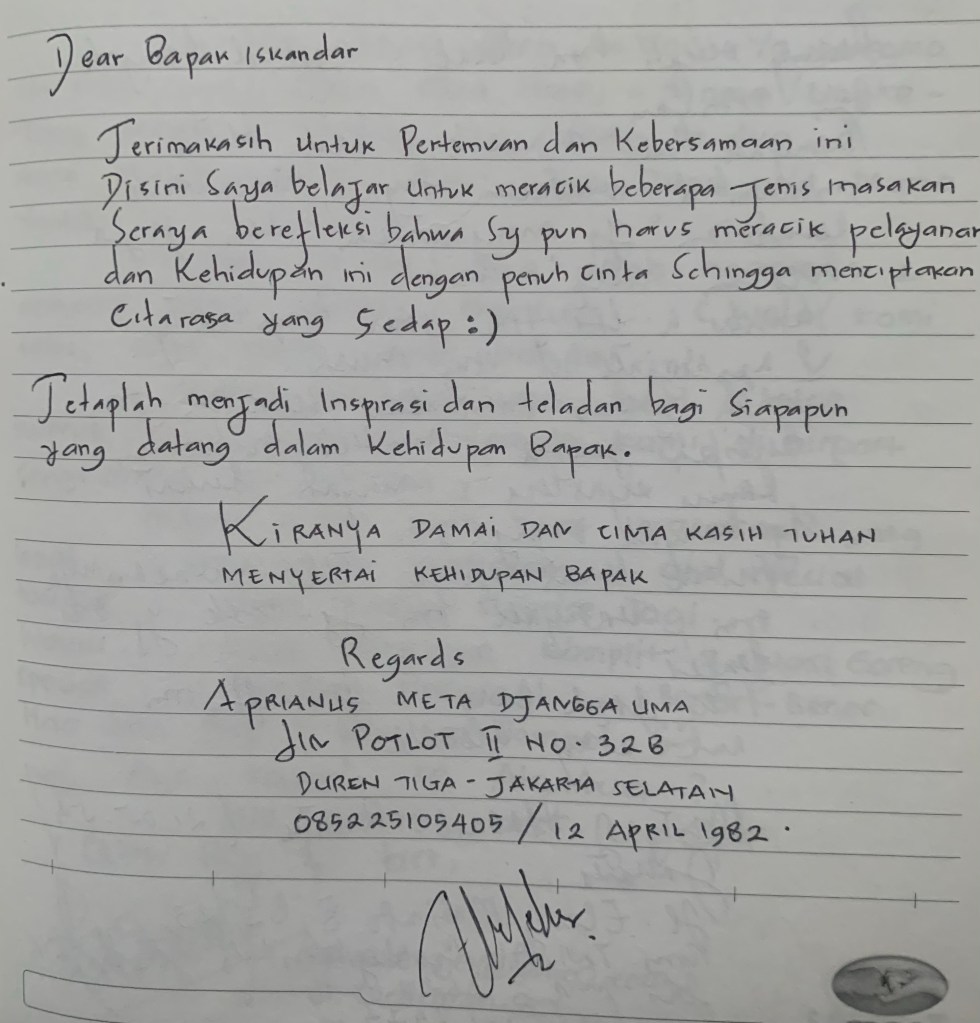 Dear Bapak Iskandar
Terimakasih untuk Pertemuan dan Kebersamaan ini
Disini Saya belajar untuk meracik beberapa Jenis masakan
Seraya berefleksi bahwa Sy pun harus meracik pelayanan
dan Kehidupan ini dengan penuh cinta Sehingga menciptakan
Citarasa yang Sedap :)
Tetaplah menjadi Inspirasi dan teladan bagi Siapapun
yang datang dalam Kehidupan Bapak.
KIRANYA DAMAI DAN CINTA KASIH TUHAN
MENYERTAI KEHIDUPAN BAPAK
Regards
APRIANUS META DJANGGA UMA
Jln POTLOT II NO. 32B
DUREN TIGA - JAKARTA SELATAN
085225105405 / 12 APRIL 1982.